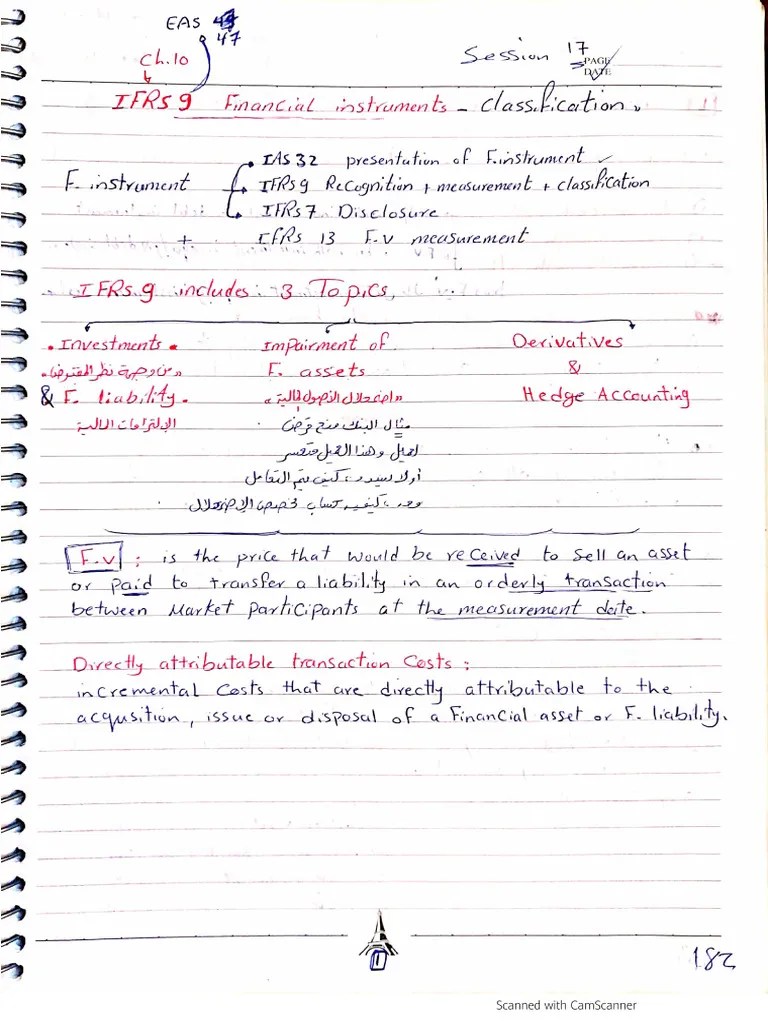 EAS 47
Ch.10
Session 17
PAGE
DATE
IFRS 9 Financial instruments - Classification.
F. instrument
IAS 32 presentation of F.instrument ✓
IFRS 9 Recognition + measurement + classification
IFRS 7 Disclosure
+ IFRS 13 F.v measurement
IFRS.9 includes 3 Topics,
• Investments •
"من وجهة نظر المقترض"
& F. liability.
الإلتزامات المالية
Impairment of
F. assets
"اضمحلال الأصول المالية"
مثال البنك منح قرض
لعميل وهذا العميل متعسر
أولا يسدد، كيف يتم التعامل
معه، كيفية حساب مخصص الإضمحلال
Derivatives
&
Hedge Accounting
F.v : is the price that would be received to sell an asset
or paid to transfer a liability in an orderly transaction
between Market participants at the measurement date.
Directly attributable transaction Costs :
incremental Costs that are directly attributable to the
acqusition, issue or disposal of a Financial asset or F. liability.
1
182
Scanned with CamScanner